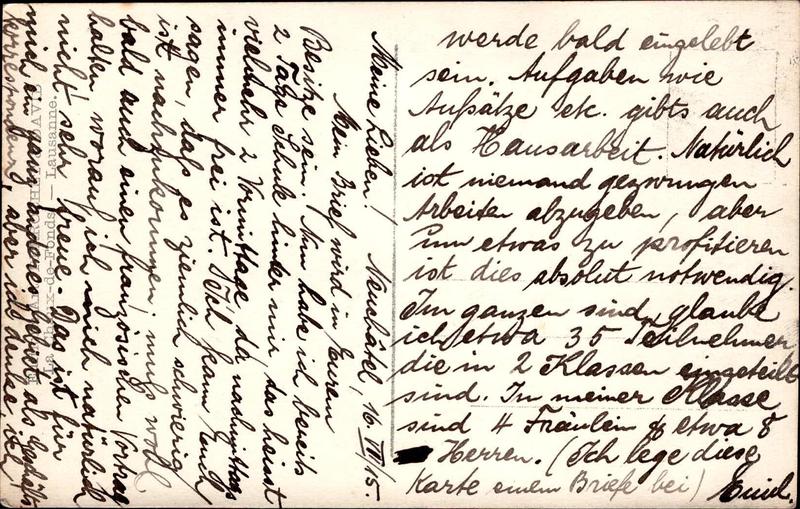 Meine Lieben! Neuchâtel, 16 VII 15.
Mein Brief wird in Euren
Besitze sein. Nun habe ich bereits
2 Tage Schule hinter mir, das heisst
vielmehr 2 Vormittage, da nachmittags
immer frei ist. Ich kann Euch
sagen, dass es ziemlich schwierig
ist nachzukommen, muss wohl
bald auch einen französischen Vortrag
halten, woran ich mich natürlich
nicht sehr freue. Das ist für
mich ein ganz anderes Gebiet als Geschäfts
korrespondenz, aber ich denke, ich
werde bald eingelebt
sein. Aufgaben wie
Aufsätze etc. gibts auch
als Hausarbeit. Natürlich
ist niemand gezwungen
Arbeiten abzugeben, aber
um etwas zu profitieren
ist dies absolut notwendig.
Im ganzen sind, glaube
ich etwa 35 Teilnehmer
die in 2 Klassen eingeteilt
sind. In meiner Klasse
sind 4 Fräulein & etwa 8
Herren. (Ich lege diese
Karte einem Briefe bei) Emil.
La Chaux-de-Fonds — Lausanne.